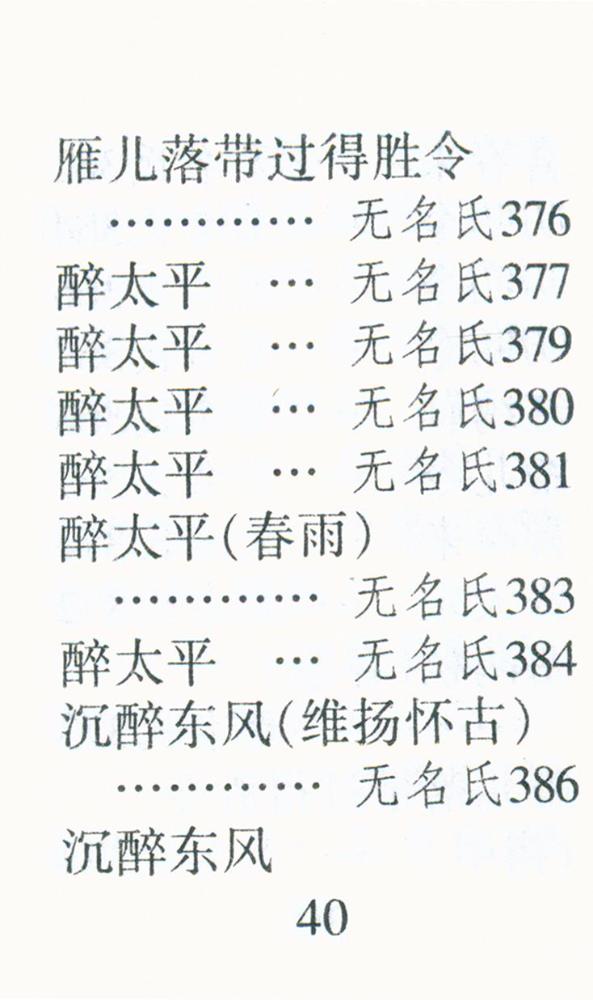 雁儿落带过得胜令
………… 无名氏376
醉太平 … 无名氏377
醉太平 … 无名氏379
醉太平 … 无名氏380
醉太平 … 无名氏381
醉太平(春雨)
………… 无名氏383
醉太平 … 无名氏384
沉醉东风(维扬怀古)
………… 无名氏386
沉醉东风
40